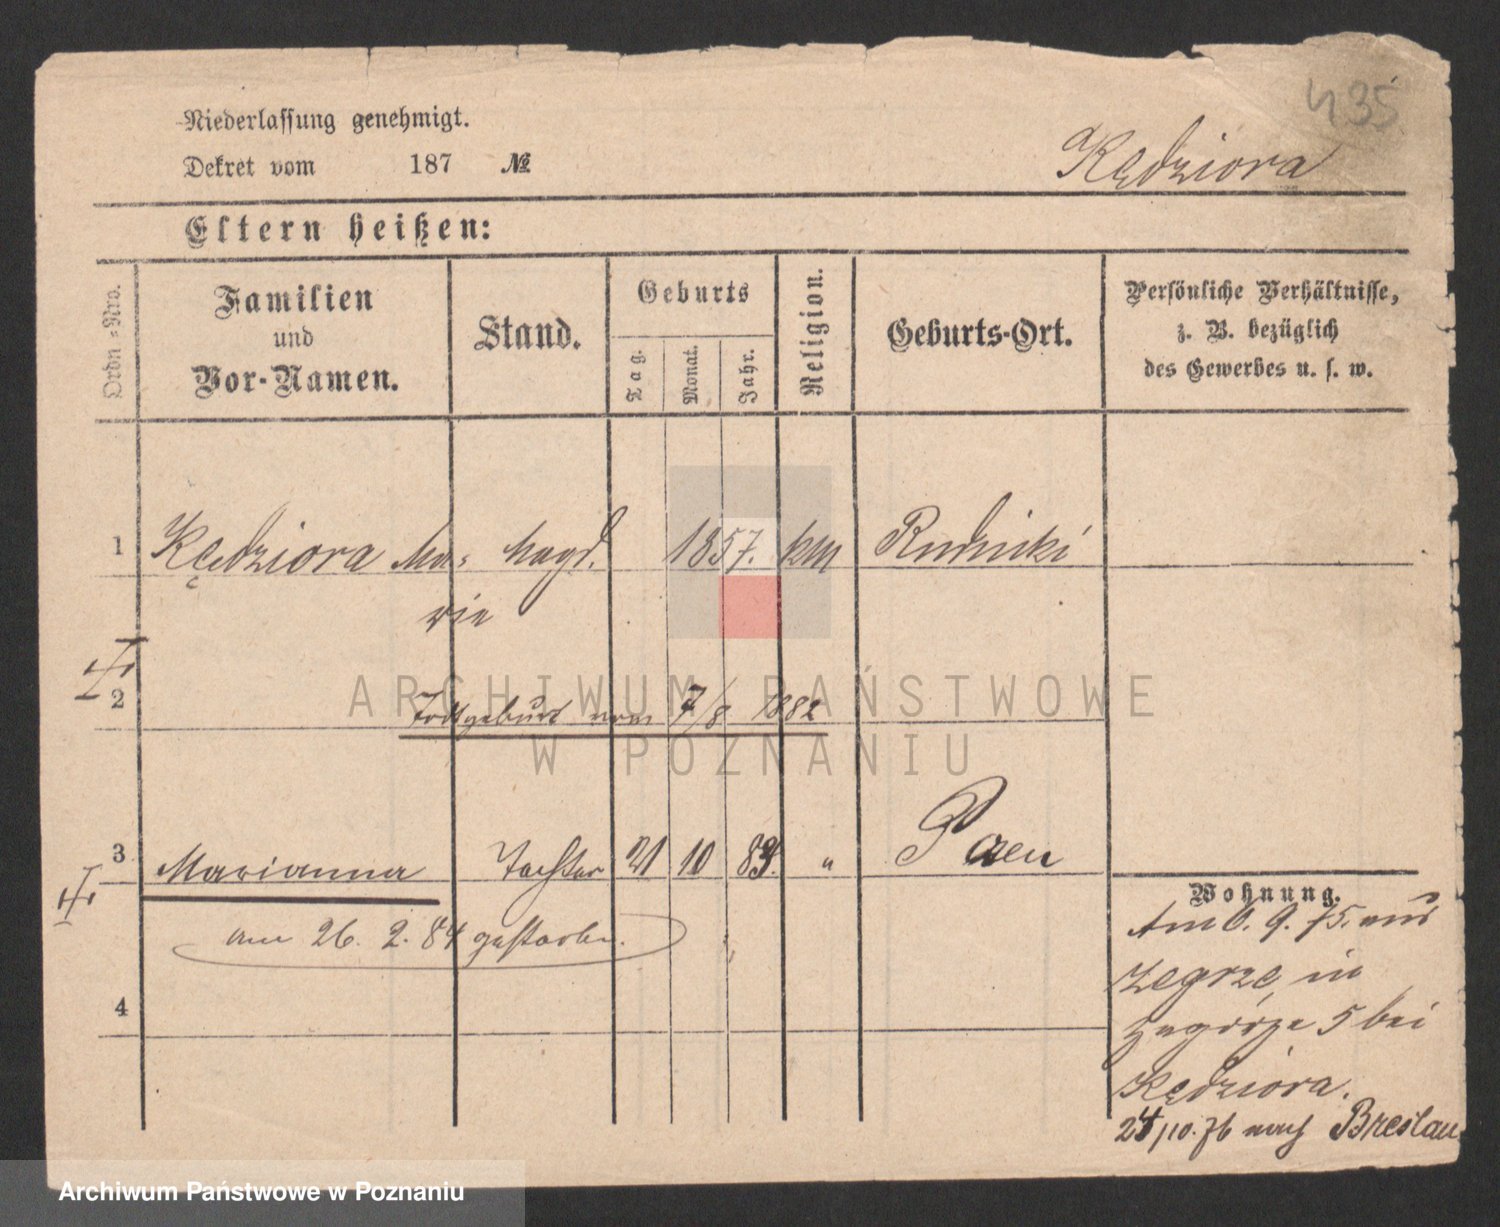 435
Niederlassung genehmigt.
Dekret vom 187 №
Kędziora
Eltern heißen:
Ordn.=Nro.
Familien
und
Vor-Namen.
Stand.
Geburts
Tag.
Monat.
Jahr.
Religion.
Geburts-Ort.
Persönliche Verhältnisse,
z. B. bezüglich
des Gewerbes u. s. w.
1 Kędziora Ma= Magd. 1857. km Rudnicki
rie
2 Todtgeburt vom 7/8 1882
3 Marianna Tochter 21 10 83. " Posen
am 26. 2. 84 gestorben.
4
Wohnung.
Am 6. 9. 75. aus
Zegrze, in
Zagórze 5 bei
Kędziora.
24/10. 76 nach Breslau
ARCHIWUM PAŃSTWOWE
W POZNANIU
Archiwum Państwowe w Poznaniu